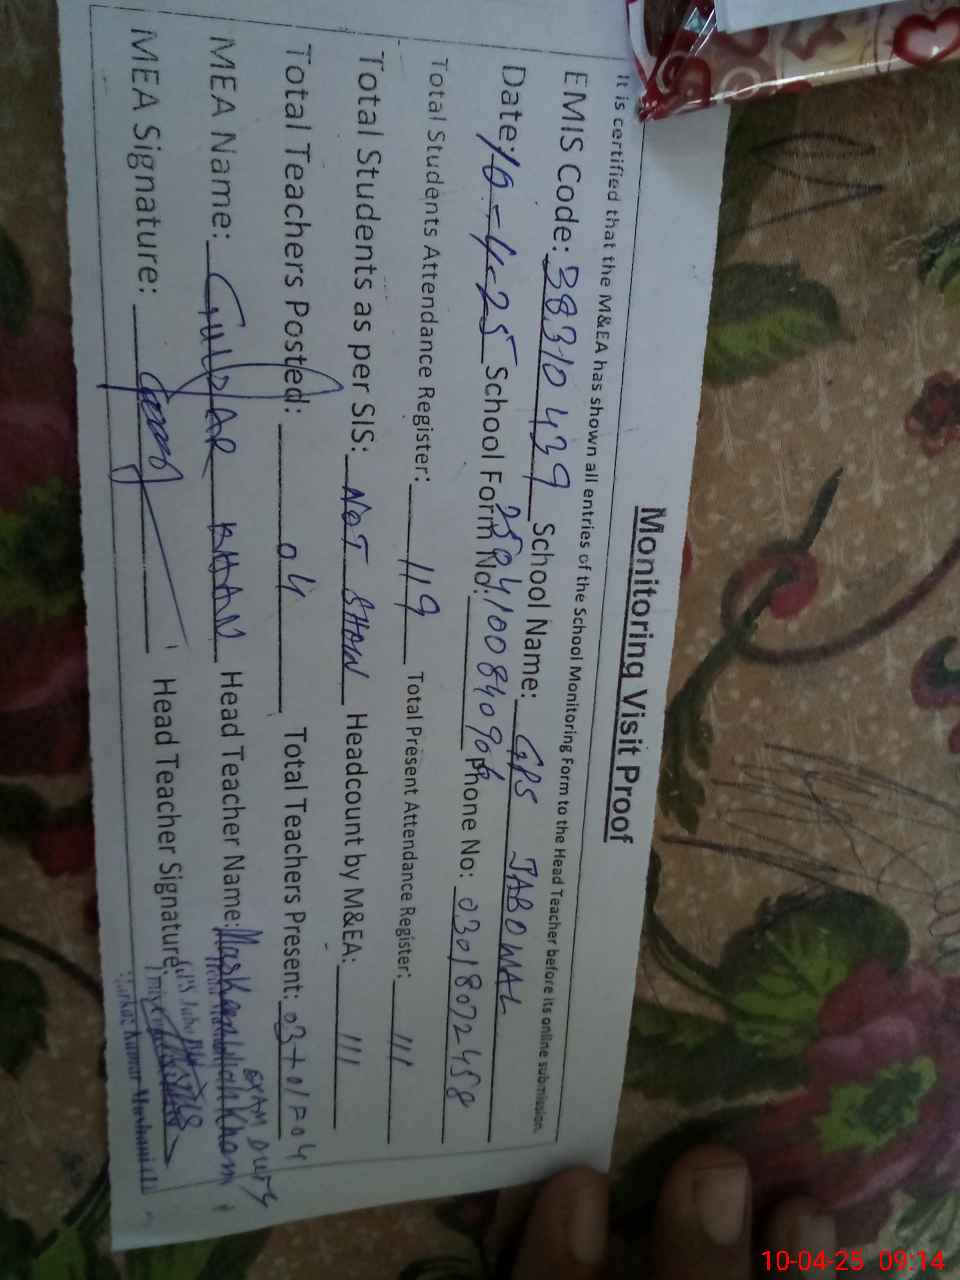 Monitoring Visit Proof
It is certified that the M&EA has shown all entries of the School Monitoring Form to the Head Teacher before its online submission.
EMIS Code: 38310439 School Name: GPS JABOWAL
Date: 10-4-25 School Form No: Phone No: 03018072458
Total Students Attendance Register: 119 Total Present Attendance Register: 111
Total Students as per SIS: NOT SHOW Headcount by M&EA: 111
Total Teachers Posted: 04 Total Teachers Present: 03+01=04
EXAM DUTY
MEA Name: GULZAR KHAN Head Teacher Name:
MEA Signature: Head Teacher Signature:
10-04-25 09:14